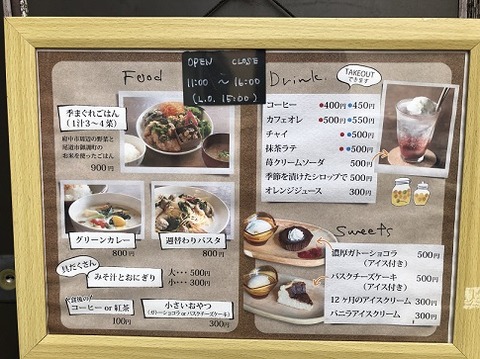 OPEN CLOSE
11:00 ～ 16:00
(L.O. 15:00)
Food
季まぐれごはん
(1汁3～4菜)
府中市周辺の野菜と
尾道市御調町の
お米を使ったごはん
900円
グリーンカレー
800円
週替わりパスタ
800円
具だくさん
みそ汁とおにぎり
大… 500円
小… 300円
食後の
コーヒー or 紅茶
100円
小さいおやつ
(ガトーショコラ or バスクチーズケーキ)
300円
Drink
TAKEOUT
できます
コーヒー ●400円 ●450円
カフェオレ ●500円 ●550円
チャイ ●●500円
抹茶ラテ ●●500円
苺クリームソーダ 500円
季節を漬けたシロップで 500円
オレンジジュース 300円
Sweets
濃厚ガトーショコラ 500円
(アイス付き)
バスクチーズケーキ 500円
(アイス付き)
12ヶ月のアイスクリーム 300円
バニラアイスクリーム 300円